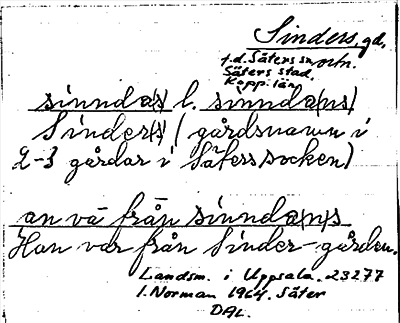 Sinders, gd.
f.d. Säters sn och.
Säters stad.
Kopp. län
sinnda(s) l. sinnda(n)s)
Sinder(s) (gårdsnamn i
2-3 gårdar i Säters socken)
an va från sinnda(n)s
Han var från Sinder-gården.
Landsm. i Uppsala. 23277
I. Norman 1964. Säter
DAL.